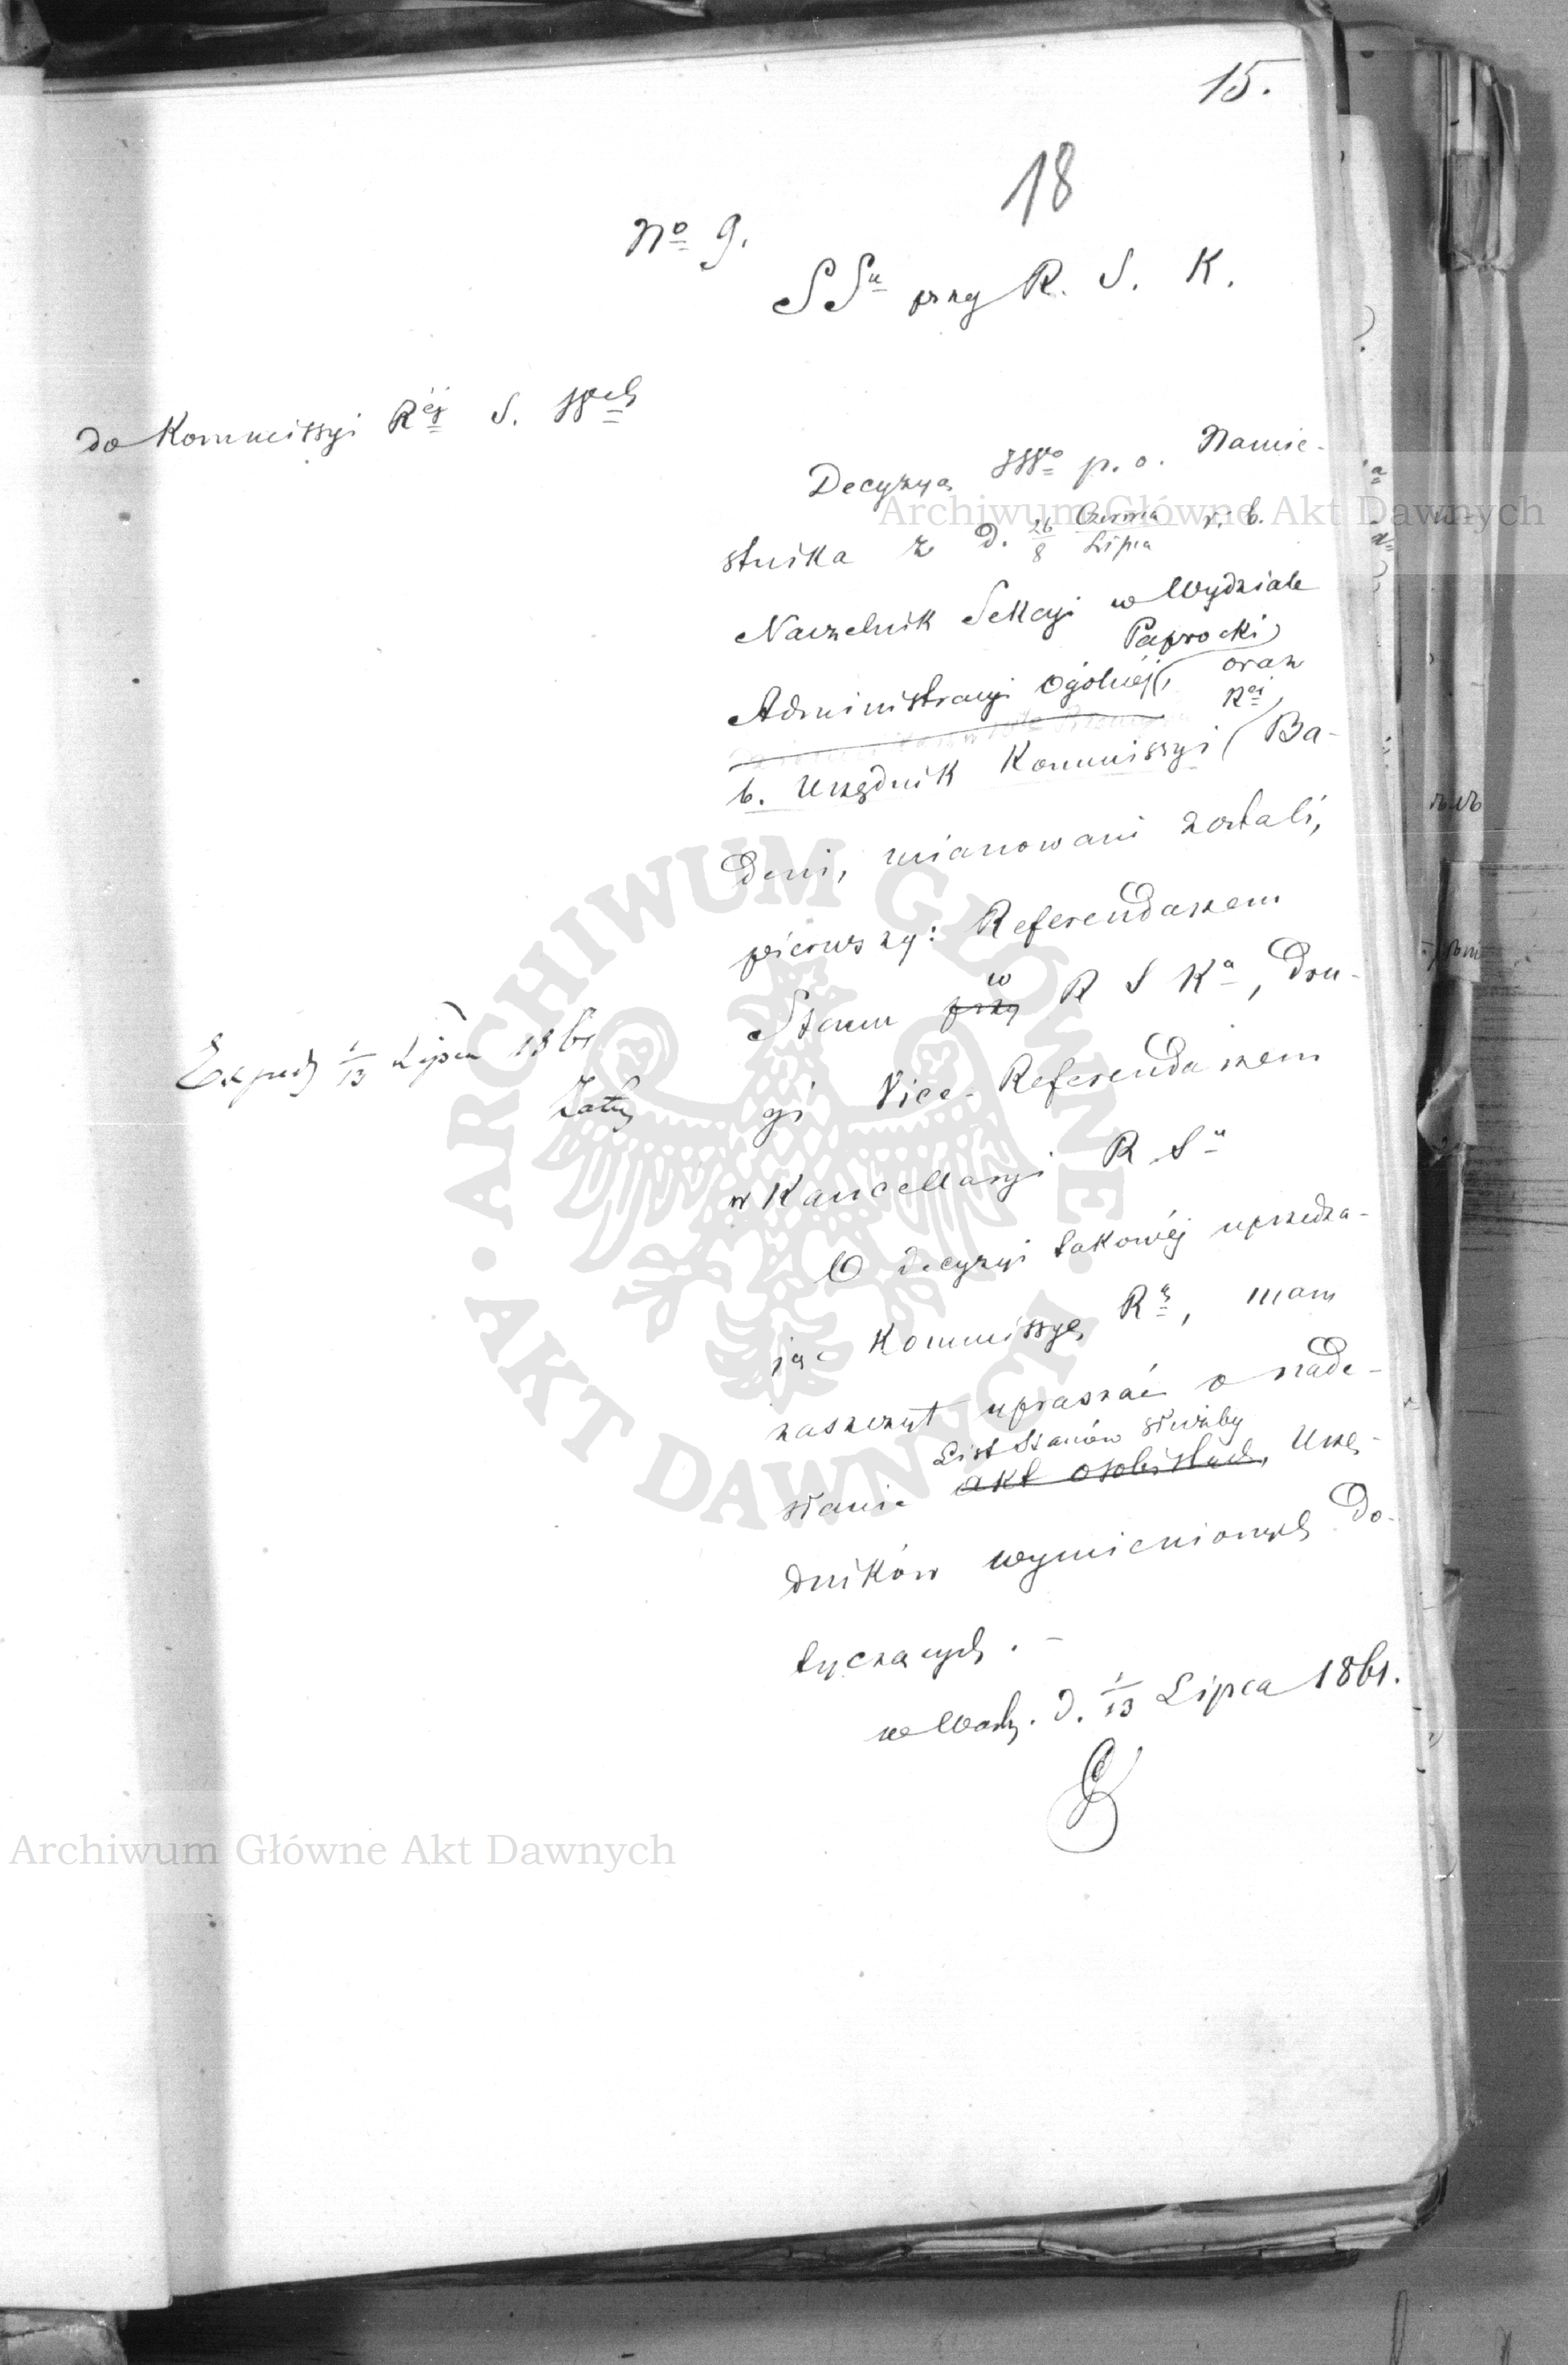 15.
18
No 9.
SSu przy R. S. K.
do Kommissyi Réj S. Wch
Decyzyą JWo p. o. Namie-
stnika z d. 26/8 Czerwca/Lipca r. b.
Naczelnik Sekcyi w Wydziale
Paprocki
Administracyi Ogólnéj, oraz
Réj
b. Urzędnik Kommissyi Ba-
deni, mianowani zostali,
pierwszy: Referendarzem
w
Stanu przy R S Ka, dru-
gi Vice-Referendarzem
w Kancellaryi R Su
O decyzyi takowéj uprzedza-
jąc Kommissyę Rą, mam
zaszczyt upraszać o nade-
List Stanów służby
słanie akt osobistych, Urzę-
dników wymienionych do-
tyczących. -
w Warsz. d. 1/13 Lipca 1861.
Exped 1/13 Lipca 1861
Archiwum Główne Akt Dawnych
ARCHIWUM GŁÓWNE AKT DAWNYCH
Archiwum Główne Akt Dawnych